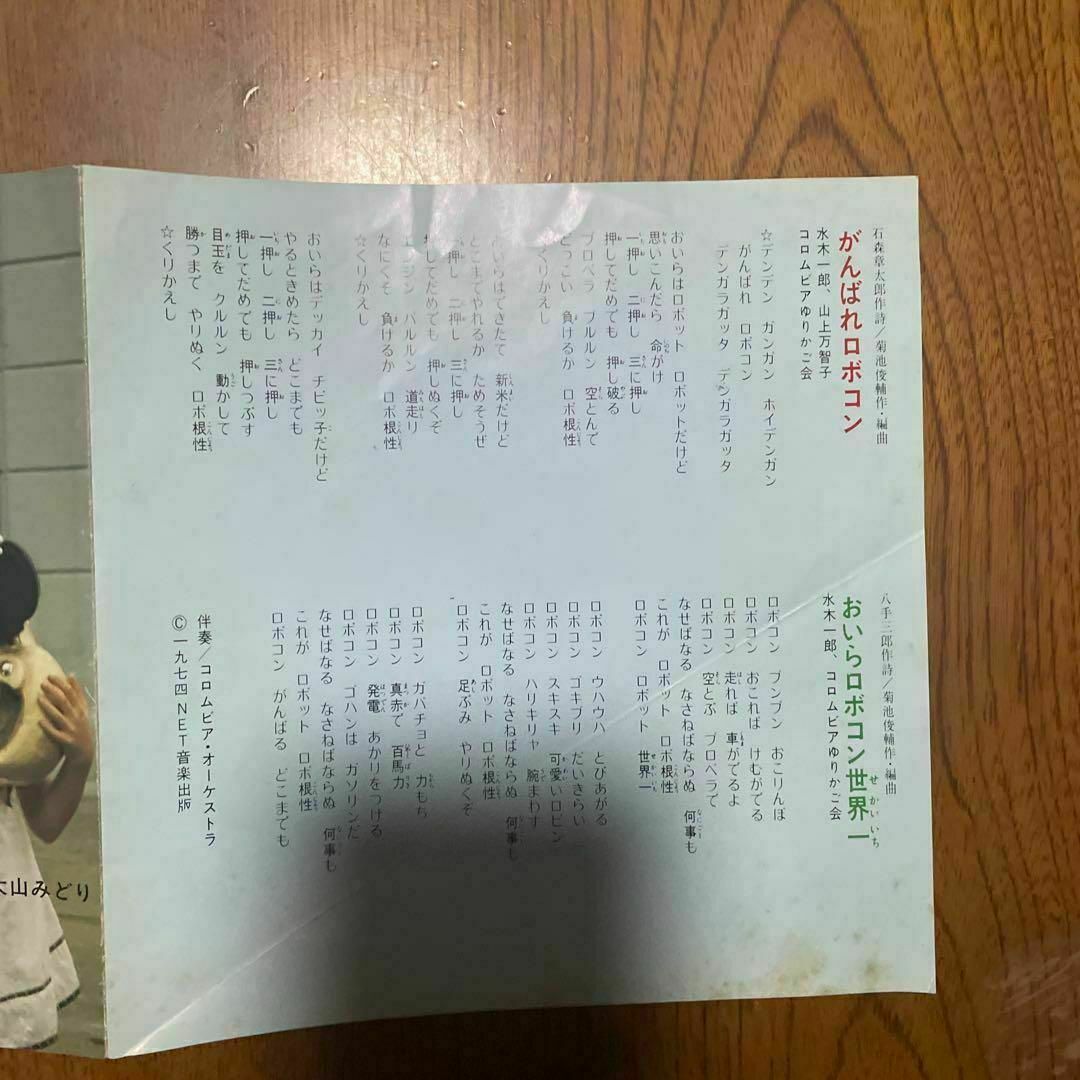 石森章太郎作詩／菊池俊輔作・編曲
がんばれロボコン
水木一郎、山上万智子
コロムビアゆりかご会
☆デンデン ガンガン ホイデンガン
がんばれ ロボコン
デンガラガッタ デンガラガッタ
おいらはロボット ロボットだけど
思いこんだら 命がけ
一押し 二押し 三に押し
押してだめでも 押し破る
プロペラ ブルルン 空とんで
どっこい 負けるか ロボ根性
くりかえし
おいらはできたて 新米だけど
どこまでやれるか ためそうぜ
押し 二押し 三に押し
押してだめでも 押しぬくぞ
エンジン バルルン 道走り
なにくそ 負けるか ロボ根性
☆くりかえし
おいらはデッカイ チビッ子だけど
やるときめたら どこまでも
一押し 二押し 三に押し
押してだめでも 押しつぶす
目玉を クルルン 動かして
勝つまで やりぬく ロボ根性
☆くりかえし
八手三郎作詩／菊池俊輔作・編曲
おいらロボコン世界一
水木一郎、コロムビアゆりかご会
ロボコン プンプン おこりんぼ
ロボコン おこれば けむがでる
ロボコン 走れば 車がでるよ
ロボコン 空とぶ プロペラで
なせばなる なさねばならぬ 何事も
これが ロボット ロボ根性
ロボコン ロボット 世界一
ロボコン ウハウハ とびあがる
ロボコン ゴキブリ だいきらい
ロボコン スキスキ 可愛いロビン
ロボコン ハリキリャ 腕まわす
なせばなる なさねばならぬ 何事も
これが ロボット ロボ根性
ロボコン 足ぶみ やりぬくぞ
ロボコン ガバチョと 力もち
ロボコン 真赤で 百馬力
ロボコン 発電 あかりをつける
ロボコン ゴハンは ガソリンだ
なせばなる なさねばならぬ 何事も
これが ロボット ロボ根性
ロボコン がんばる どこまでも
伴奏／コロムビア・オーケストラ
Ⓒ一九七四 NET音楽出版
山みどり